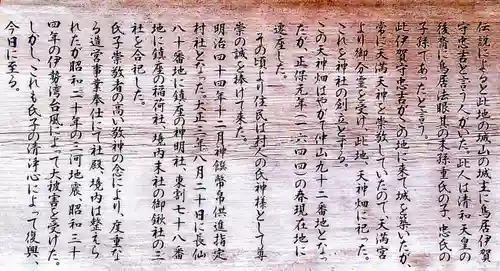 伝説によると此地の城山の城主に鳥居伊賀
守忠吉と言う人がいた。此人は清和天皇の
後裔に鳥居法眼其の末孫重氏の子、忠氏の
子孫であったと言う。
此伊賀守忠吉がこの地に来て城を築いたが
常に天満天神を崇敬していたので、天満宮
より御分霊を受け、此地、天神畑に祀った。
これを神社の創立とする。
この天神畑はやがて仲山九十二番地となっ
たが、正保元年(一六四四)の春現在地に
遷座した。
その頃より住民は村人の氏神様として尊
崇の誠を捧げて来た。
明治四十四年十二月神饌幣帛供進指定
村社となった。大正三年八月二十日に長仙
八十番地に鎮座の神明社、東割七十八番
地に鎮座の稲荷社、境内末社の御鍬社の三
社を合祀した。
氏子崇敬者の高い敬神の念により、度重な
る造営事業奉仕にて社殿、境内は整えら
れたが昭和二十年の三河地震、昭和三十
四年の伊勢湾台風によって大被害を受けた。
しかし、これも氏子の清浄心によって復興、
今日に至る。